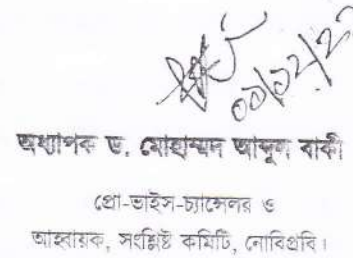 অধ্যাপক ড. মোহাম্মদ আব্দুল বাকী
প্রো-ভাইস-চ্যান্সেলর ও
আহবায়ক, সংশ্লিষ্ট কমিটি, নোবিপ্রবি।